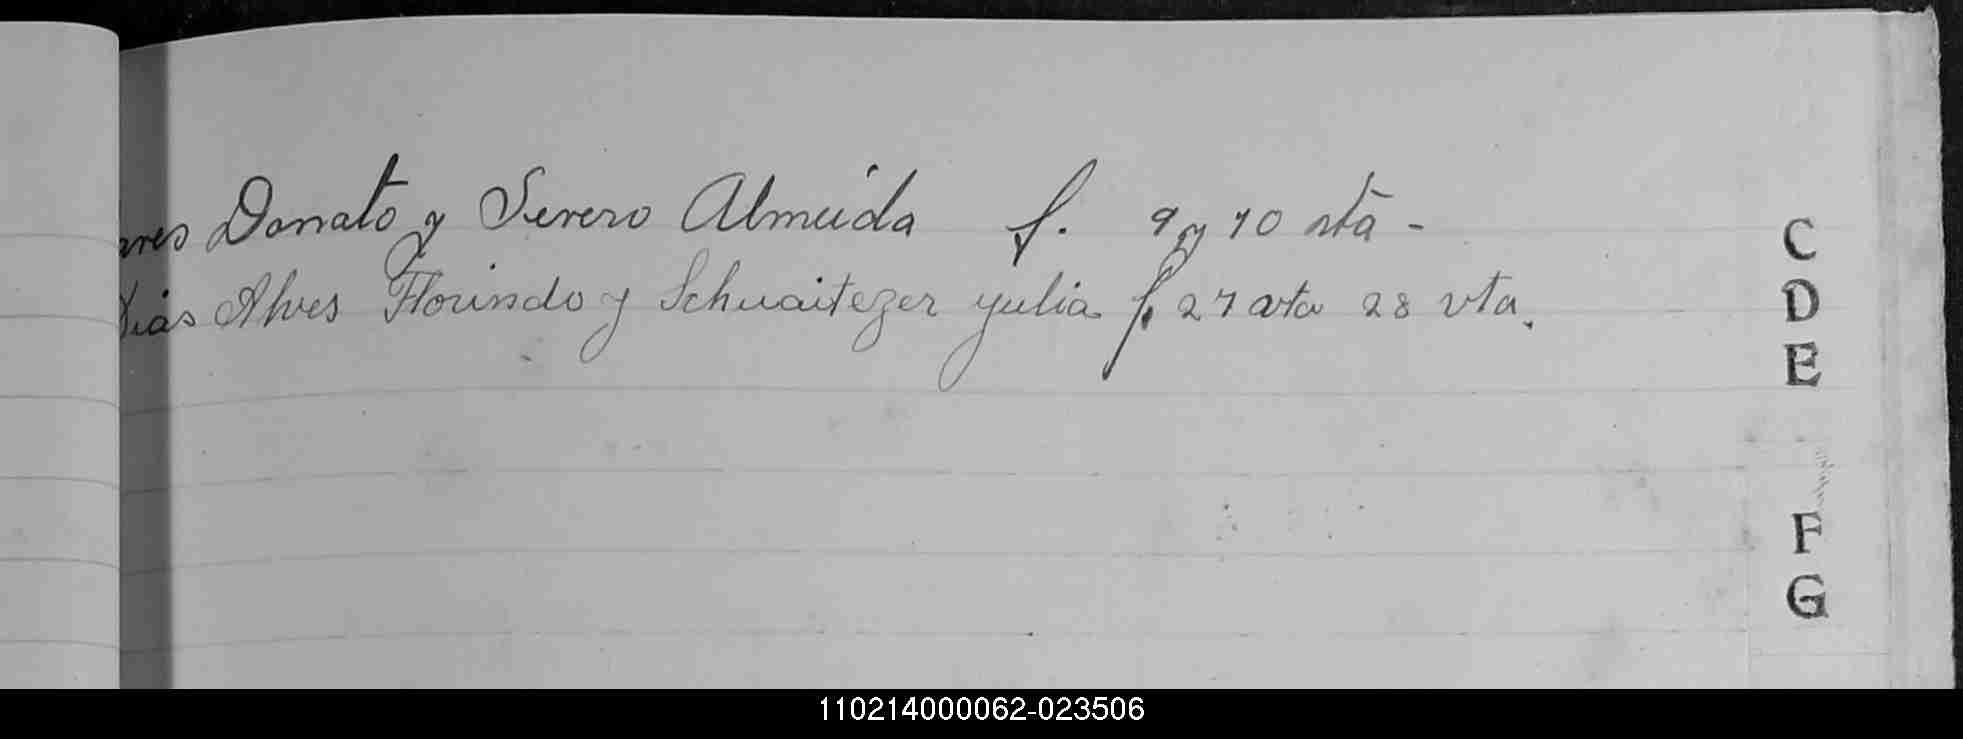 Donato y Severo Almeida f. 9 y 10 vta -
Dias Alves Florindo y Schuaitezer yulia f. 27 vta 28 vta.
C
D
E
F
G
110214000062-023506